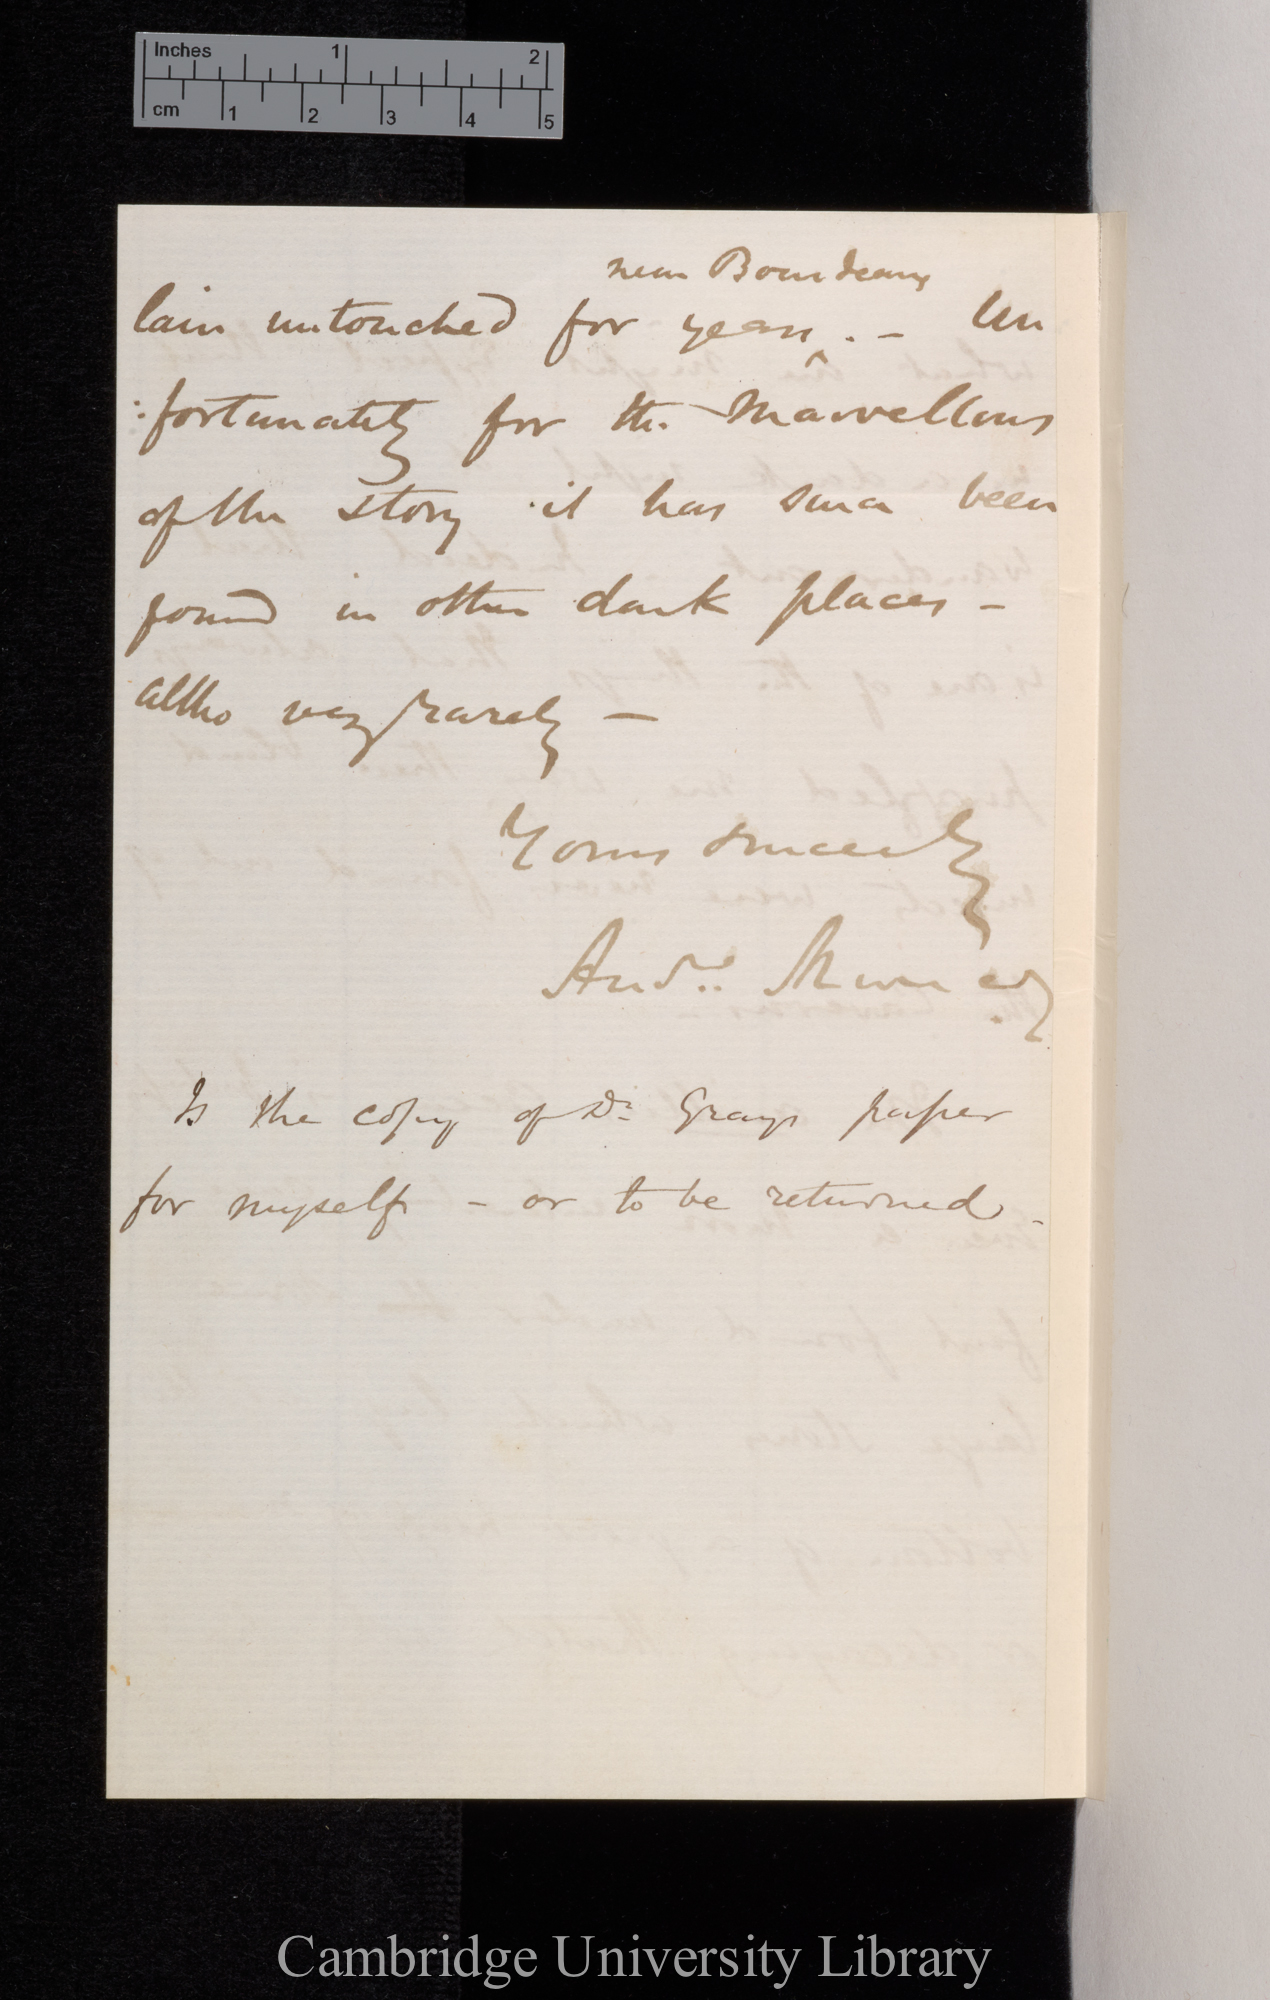 Inches 1 2
cm 1 2 3 4 5
near Bourdeaux
lain untouched for years ^. – Un
:fortunately for the Marvellous
of the story it has since been
found in other dark places –
altho very rarely –
Yours sincerely
Andw. Murray
Is the copy of Dr. Grays paper
for myself – or to be returned –
Cambridge University Library